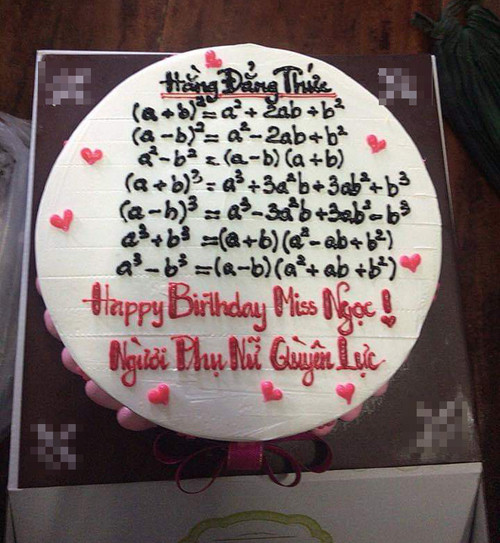 Hằng Đẳng Thức
(a + b)² = a² + 2ab + b²
(a - b)² = a² - 2ab + b²
a² - b² = (a - b) (a + b)
(a + b)³ = a³ + 3a²b + 3ab² + b³
(a - b)³ = a³ - 3a²b + 3ab² - b³
a³ + b³ = (a + b) (a² - ab + b²)
a³ - b³ = (a - b) (a² + ab + b²)
Happy Birthday Miss Ngọc !
Người Phụ Nữ Quyền Lực